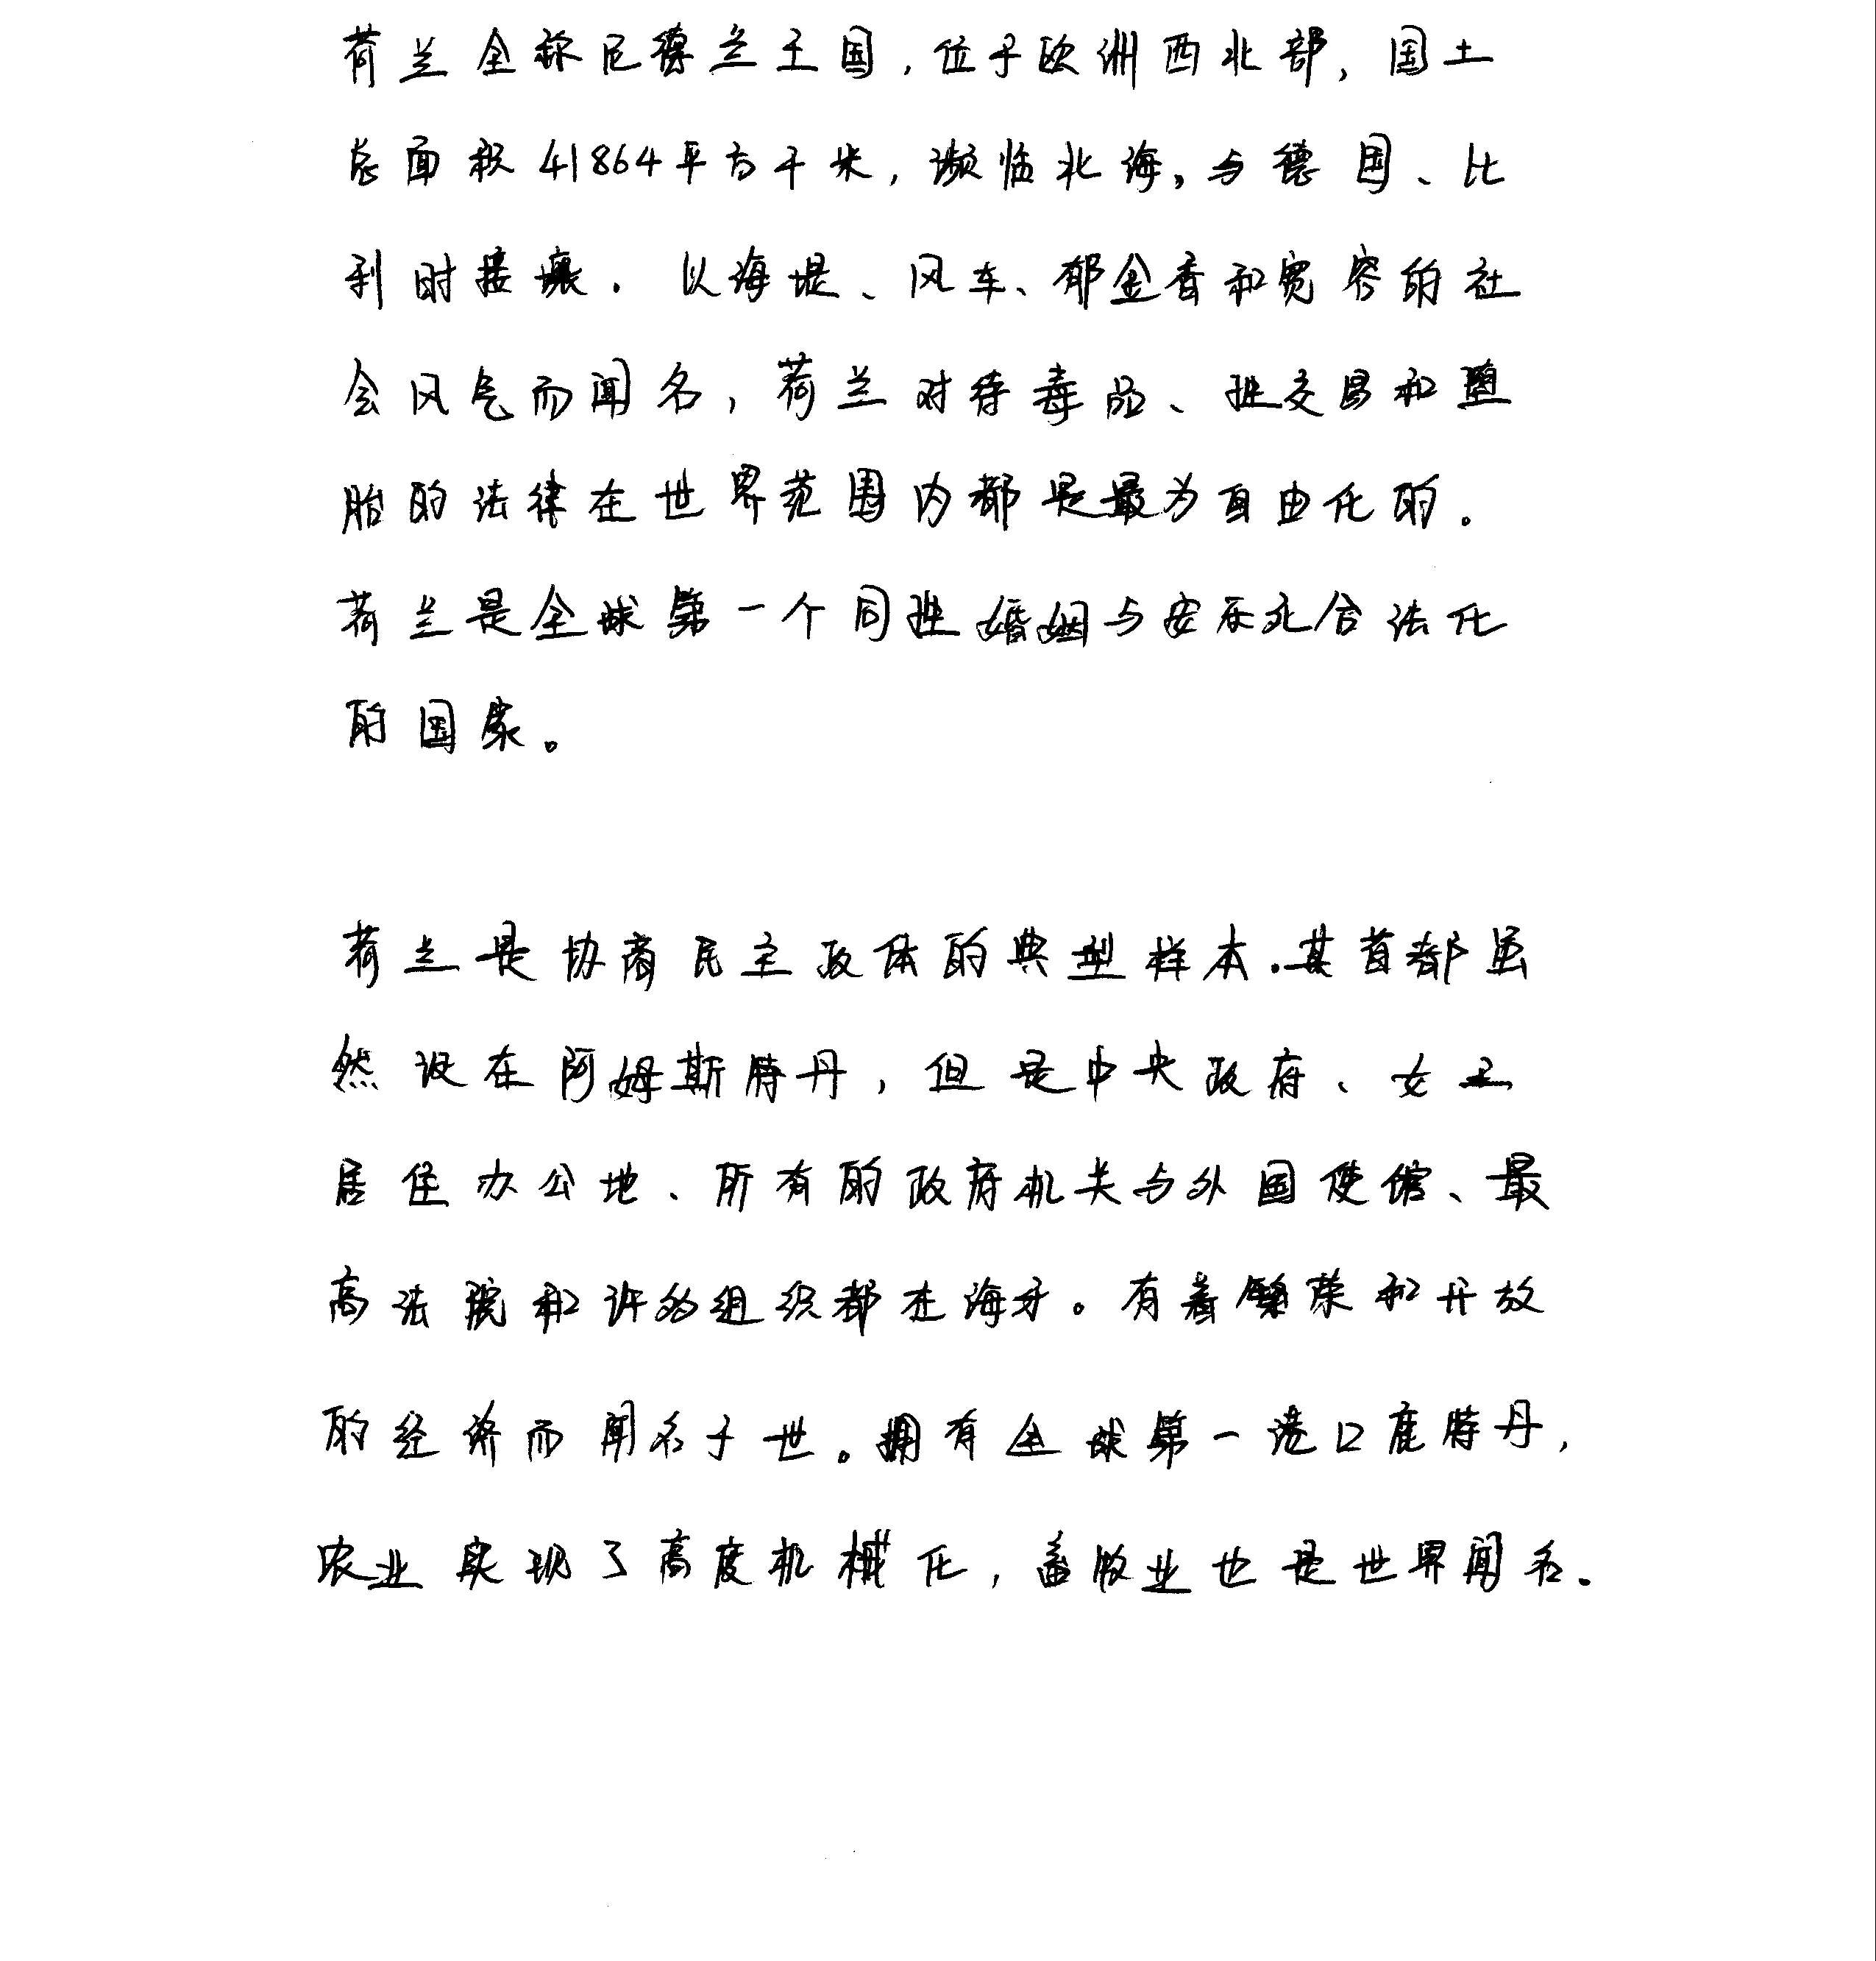 荷兰全称尼德兰王国，位于欧洲西北部，国土
总面积41864平方千米，濒临北海，与德国、比
利时接壤。以海堤、风车、郁金香和宽容的社
会风气而闻名，荷兰对待毒品、性交易和堕
胎的法律在世界范围内都是最为自由化的。
荷兰是全球第一个同性婚姻与安乐死合法化
的国家。
荷兰是协商民主政体的典型样本。其首都虽
然设在阿姆斯特丹，但是中央政府、女王
居住办公地、所有的政府机关与外国使馆、最
高法院和许多组织都在海牙。有着繁荣和开放
的经济而闻名于世。拥有全球第一港口鹿特丹，
农业实现了高度机械化，畜牧业也是世界闻名。